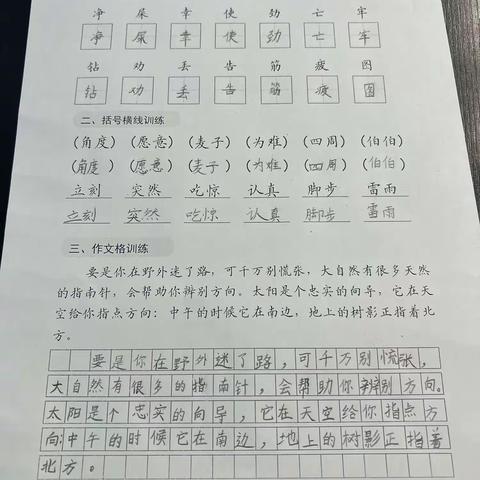 净 屎 幸 使 劲 亡 牢
净 屎 幸 使 劲 亡 牢
钻 劝 丢 告 筋 疲 图
钻 劝 丢 告 筋 疲 图
二、括号横线训练
(角度) (愿意) (麦子) (为难) (四周) (伯伯)
(角度) (愿意) (麦子) (为难) (四周) (伯伯)
立刻 突然 吃惊 认真 脚步 雷雨
立刻 突然 吃惊 认真 脚步 雷雨
三、作文格训练
要是你在野外迷了路，可千万别慌张，大自然有很多天然
的指南针，会帮助你辨别方向。太阳是个忠实的向导，它在天
空给你指点方向：中午的时候它在南边，地上的树影正指着北
方。
要是你在野外迷了路，可千万别慌张，
大自然有很多的指南针，会帮助你辨别方向。
太阳是个忠实的向导，它在天空给你指点方
向：中午的时候它在南边，地上的树影正指着
北方。